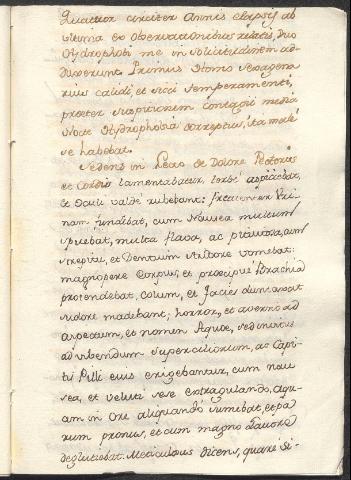 Quatuor circiter Annis elapsis ab
ultima ex observationibus relatis, duo
Hydrophobi me in solicitudinem ad-
duxerunt. Primus Homo sexagena
rius calidi, et sicci temperamenti,
praeter suspitionem contagii media
Nocte Hydrophobia correptus, ita male
se habebat.
Sedens in Lecto de Dolore Pectoris
et Cordis lamentabatur, torvè aspiciebat,
et Oculi valdè rubebant: frequenter Uri-
nam fundebat, cum Nausea multum
spuebat, multa flava, ac pituitosa, cum
strepitu, et Dentium stridore vomebat:
magnopere Corpus, et praecipuè Brachia
protendebat, collum, et Facies dum
sudore madebant; horror, et aversio ad
aspectum, et nomen Aquae, sed
ad bibendum superciliorum, ac Capi-
tis Pilli eius erigebantur, cum nau
sea, et veluti sese extrangulando, aqu-
am in Ore aliquando sumebat, et pa
rum pronus, et cum magno Pavore
deglutiebat. Meticulosus dicens, quare si-